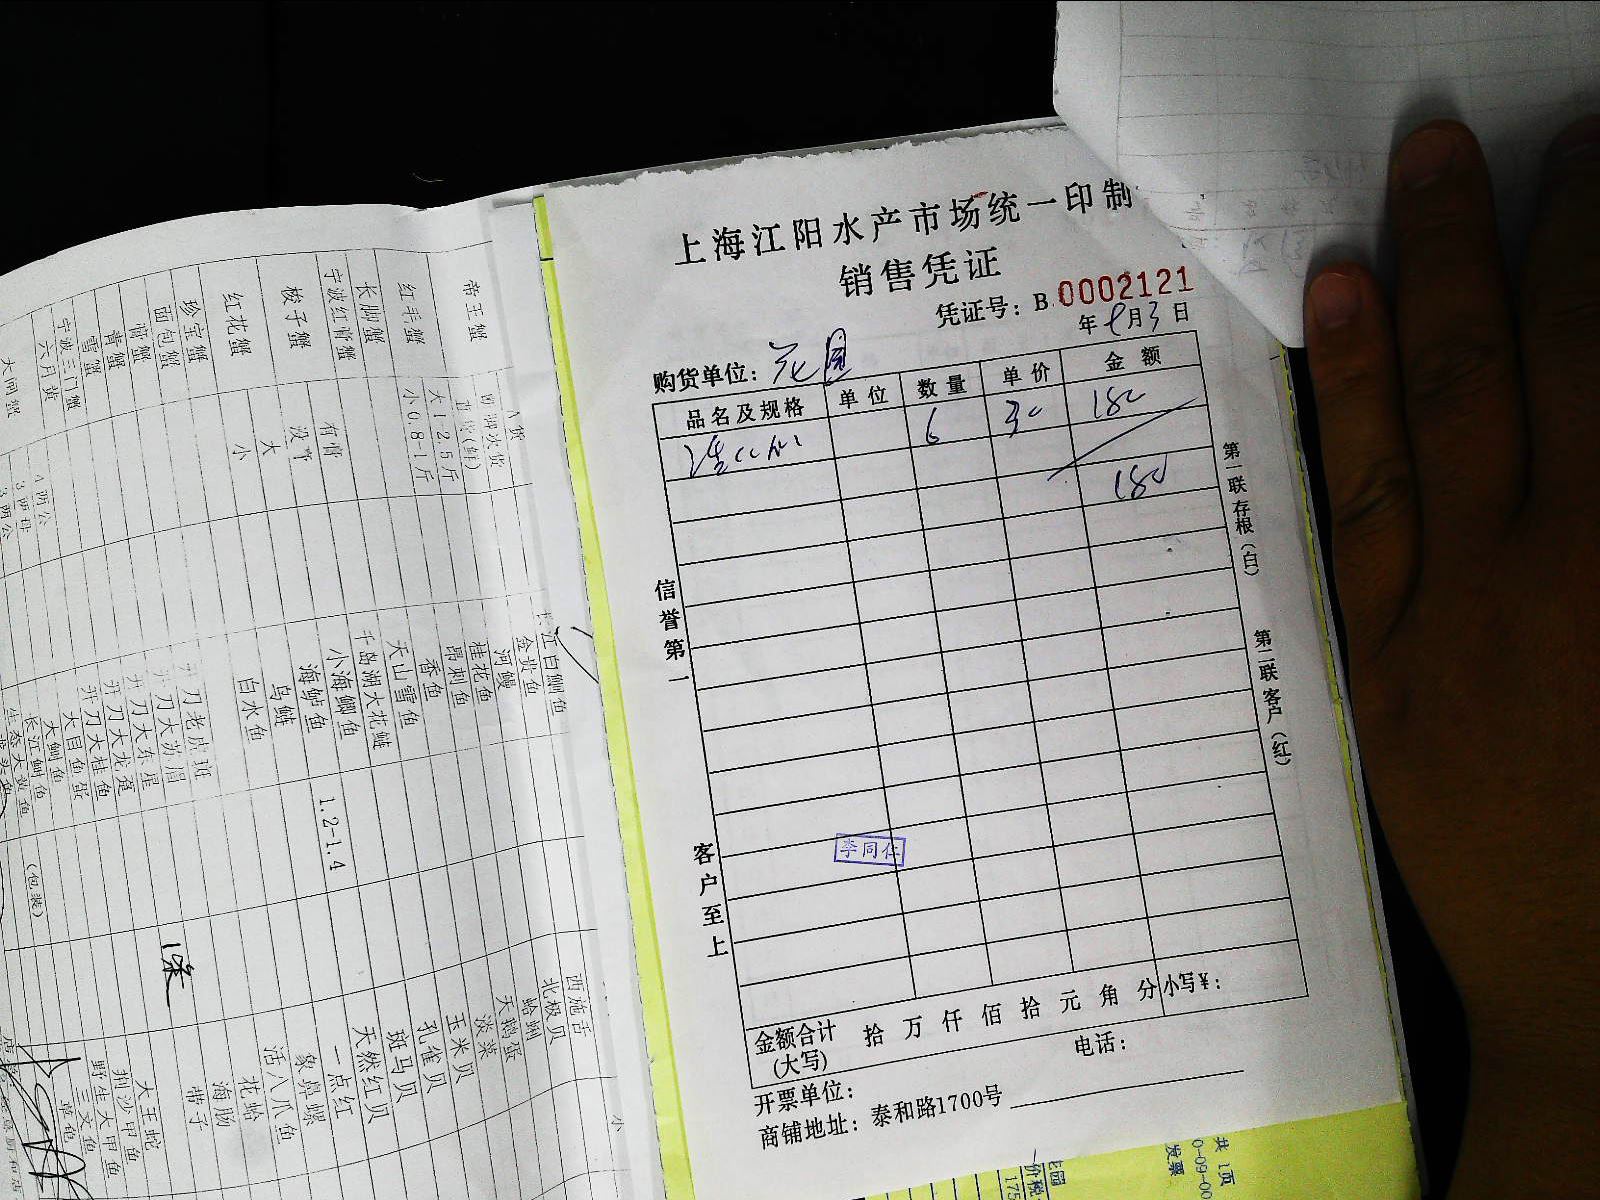 上海江阳水产市场统一印制
销售凭证
凭证号：B 0002121
年 9月3日
购货单位：花园
品名及规格 单位 数量 单价 金额
6 30 180
180
信誉第一
客户至上
第一联存根（白）
第二联客户（红）
李同仁
金额合计（大写） 拾 万 仟 佰 拾 元 角 分 小写￥：
开票单位： 电话：
商铺地址：泰和路1700号
帝王蟹
红毛蟹
长脚蟹
宁波红膏蟹
梭子蟹
红花蟹
珍宝蟹
面包蟹
膏蟹
青蟹
雪蟹
宁波三门蟹
六月黄
大闸蟹
A货
大1-2.5斤
小0.8-1斤
有膏
没膏
大
小
长江白鮰鱼
金贵鱼
河鳗
桂花鱼
昂刺鱼
香鱼
天山雪鱼
千岛湖大花鲢
小海鲫鱼
海鲈鱼
乌鲢
白水鱼
开刀老虎斑
开刀大苏眉
开刀大东星
开刀大龙趸
开刀大桂鱼
大目鱼蛋
大鮰鱼
长江鮰鱼
生态大黄鱼
1.2-1.4
（包装）
西施舌
北极贝
蛤蜊
天鹅蛋
淡菜
玉米贝
孔雀贝
斑马贝
天然红贝
一点红
象鼻螺
活八爪鱼
花蛤
海肠
带子
大王蛇
荆沙甲鱼
野生大甲鱼
三文鱼
共 1页
发票